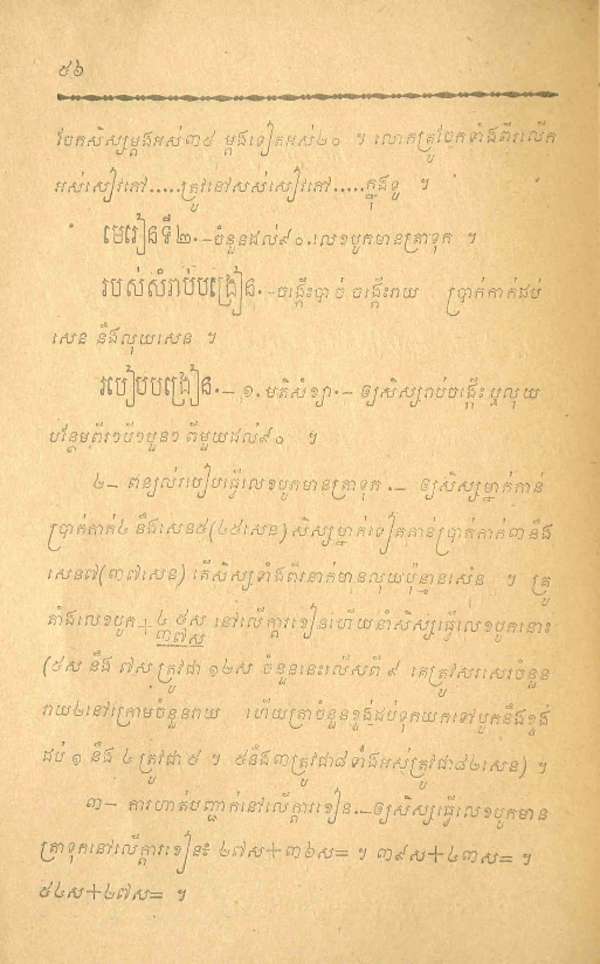 ៥៦
ចែកសិស្សម្ដងអស់៣៥ ម្ដងទៀតអស់២០ ។ លោកត្រូវចែកទាំងពីរលើក
អស់សៀវភៅ.....ត្រូវនៅសស់សៀវភៅ.....ក្នុងទូ ។
មេរៀនទី២.–ចំនួនដល់៩០.លេខបូកមានត្រាទុក ។
របស់សំរាប់បង្រៀន.–ចង្កើះបាច់ ចង្កើះរាយ ប្រាក់កាក់ដប់
សេន នឹងលុយសេន ។
របៀបបង្រៀន.– ១. មតិសំខ្យា.– ឲ្យសិស្សរាប់ចង្កើះ ឬលុយ
បន្ថែមពីរៗបីៗបួនៗ ពីមួយដល់៩០ ។
២– ពន្យល់របៀបធ្វើលេខបូកមានត្រាទុក .– ឲ្យសិស្សម្នាក់កាន់
ប្រាក់កាក់៤ នឹងសេន៥(៤៥សេន) សិស្សម្នាក់ទៀតកាន់ប្រាក់កាក់៣ នឹង
សេន៧(៣៧សេន) តើសិស្សទាំងពីរនាក់មានលុយប៉ុន្មានសេន ។ ត្រូវ
តាំងលេខបូក + ៤៥ស នៅលើក្ដារខៀនហើយនាំសិស្សធ្វើលេខបូកនោះ
៣៧ស
(៥ស នឹង ៧ស ត្រូវជា ១២ស ចំនួននេះលើសពី ៩ គេត្រូវសរសេរចំនួន
រាយ២នៅក្រោមចំនួនរាយ ហើយត្រាចំនួនខ្ទង់ដប់ទុកយកទៅបូកនឹងខ្ទង់
ដប់ ១ នឹង ៤ ត្រូវជា ៥ ។ ៥នឹង៣ត្រូវជា៨ទាំងអស់ត្រូវជា៨២សេន) ។
៣– ការហាត់បញ្ជាក់នៅលើក្ដារខៀន.–ឲ្យសិស្សធ្វើលេខបូកមាន
ត្រាទុកនៅលើក្ដារខៀន៖ ៤៧ស+៣៦ស= ។ ៣៩ស+៤៣ស= ។
៥៤ស+២៧ស= ។